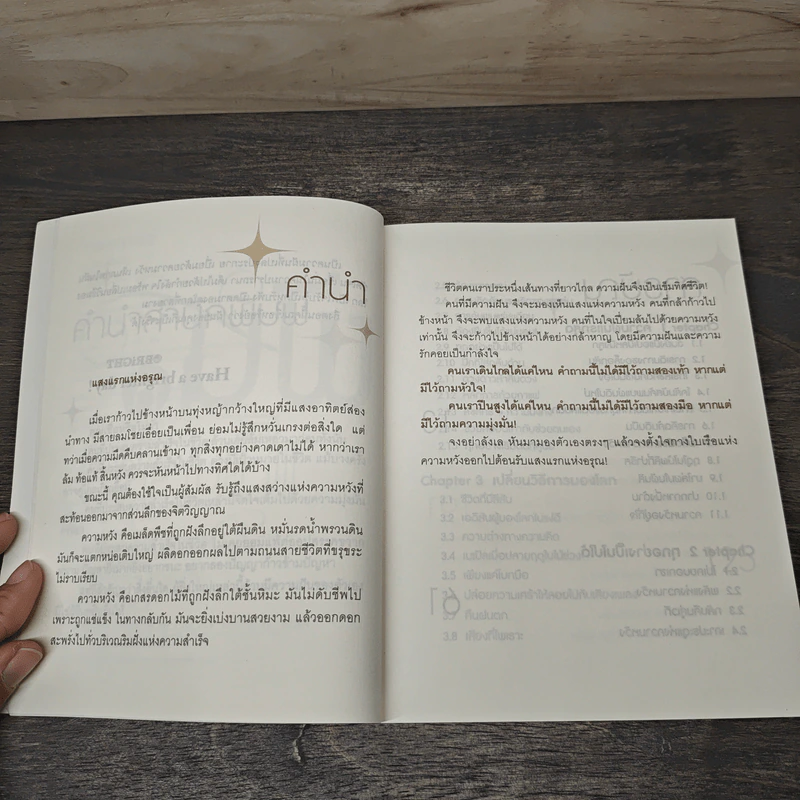 คำนำ
แสงแรกแห่งอรุณ
เมื่อเราก้าวไปข้างหน้าบนทุ่งหญ้ากว้างใหญ่ที่มีแสงอาทิตย์ส่อง
นำทาง มีสายลมโชยเอื่อยเป็นเพื่อน ย่อมไม่รู้สึกหวั่นเกรงต่อสิ่งใด แต่
ทว่าเมื่อความมืดคืบคลานเข้ามา ทุกสิ่งทุกอย่างคาดเดาไม่ได้ หากว่าเรา
ล้ม ท้อแท้ สิ้นหวัง ควรจะหันหน้าไปทางทิศใดได้บ้าง
ขณะนี้ คุณต้องใช้ใจเป็นผู้สัมผัส รับรู้ถึงแสงสว่างแห่งความหวังที่
สะท้อนออกมาจากส่วนลึกของจิตวิญญาณ
ความหวัง คือเมล็ดพืชที่ถูกฝังลึกอยู่ใต้ผืนดิน หมั่นรดน้ำพรวนดิน
มันก็จะแตกหน่อเติบใหญ่ ผลิดอกออกผลไปตามถนนสายชีวิตที่ขรุขระ
ไม่ราบเรียบ
ความหวัง คือเกสรดอกไม้ที่ถูกฝังลึกใต้ชั้นหิมะ มันไม่ดับชีพไป
เพราะถูกแช่แข็ง ในทางกลับกัน มันจะยิ่งเบ่งบานสวยงาม แล้วออกดอก
สะพรั่งไปทั่วบริเวณริมฝั่งแห่งความสำเร็จ
ชีวิตคนเราประหนึ่งเส้นทางที่ยาวไกล ความฝันจึงเป็นเข็มทิศชีวิต!
คนที่มีความฝัน จึงจะมองเห็นแสงแห่งความหวัง คนที่กล้าก้าวไป
ข้างหน้า จึงจะพบแสงแห่งความหวัง คนที่ในใจเปี่ยมล้นไปด้วยความหวัง
เท่านั้น จึงจะก้าวไปข้างหน้าได้อย่างกล้าหาญ โดยมีความฝันและความ
รักคอยเป็นกำลังใจ
คนเราเดินไกลได้แค่ไหน คำถามนี้ไม่ได้มีไว้ถามสองเท้า หากแต่
มีไว้ถามหัวใจ!
คนเราปีนสูงได้แค่ไหน คำถามนี้ไม่ได้มีไว้ถามสองมือ หากแต่
มีไว้ถามความมุ่งมั่น!
จงอย่าลังเล หันมามองตัวเองตรงๆ แล้วจงตั้งใจกางใบเรือแห่ง
ความหวังออกไปต้อนรับแสงแรกแห่งอรุณ!